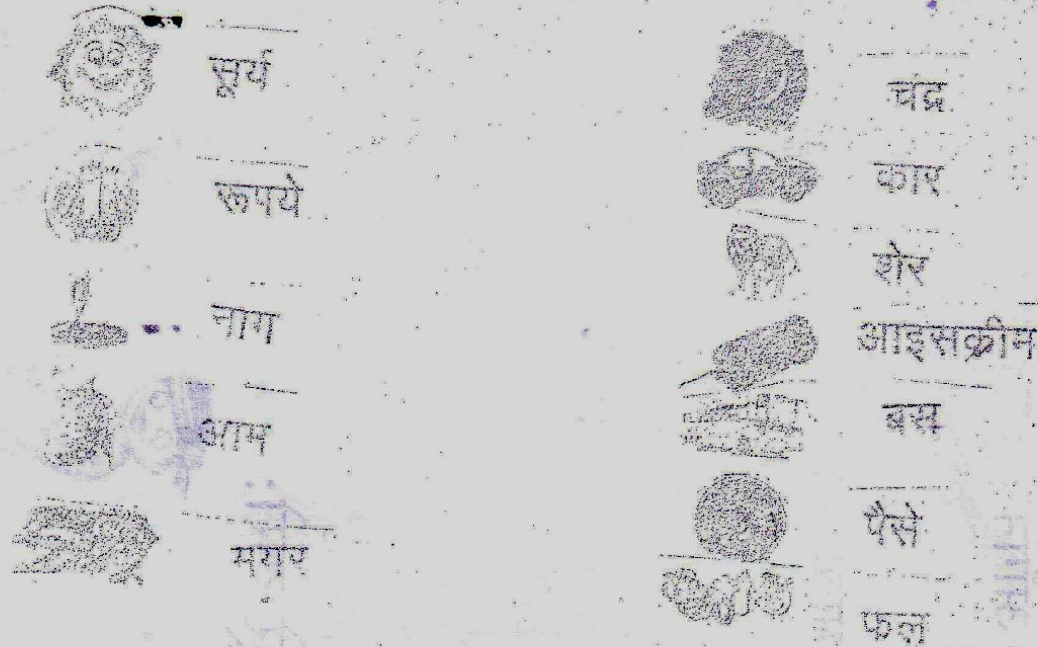 सूर्य
रूपये
नाग
आम
मगर
चंद्र
कार
शेर
आइसक्रीम
बस
पैसे
फल